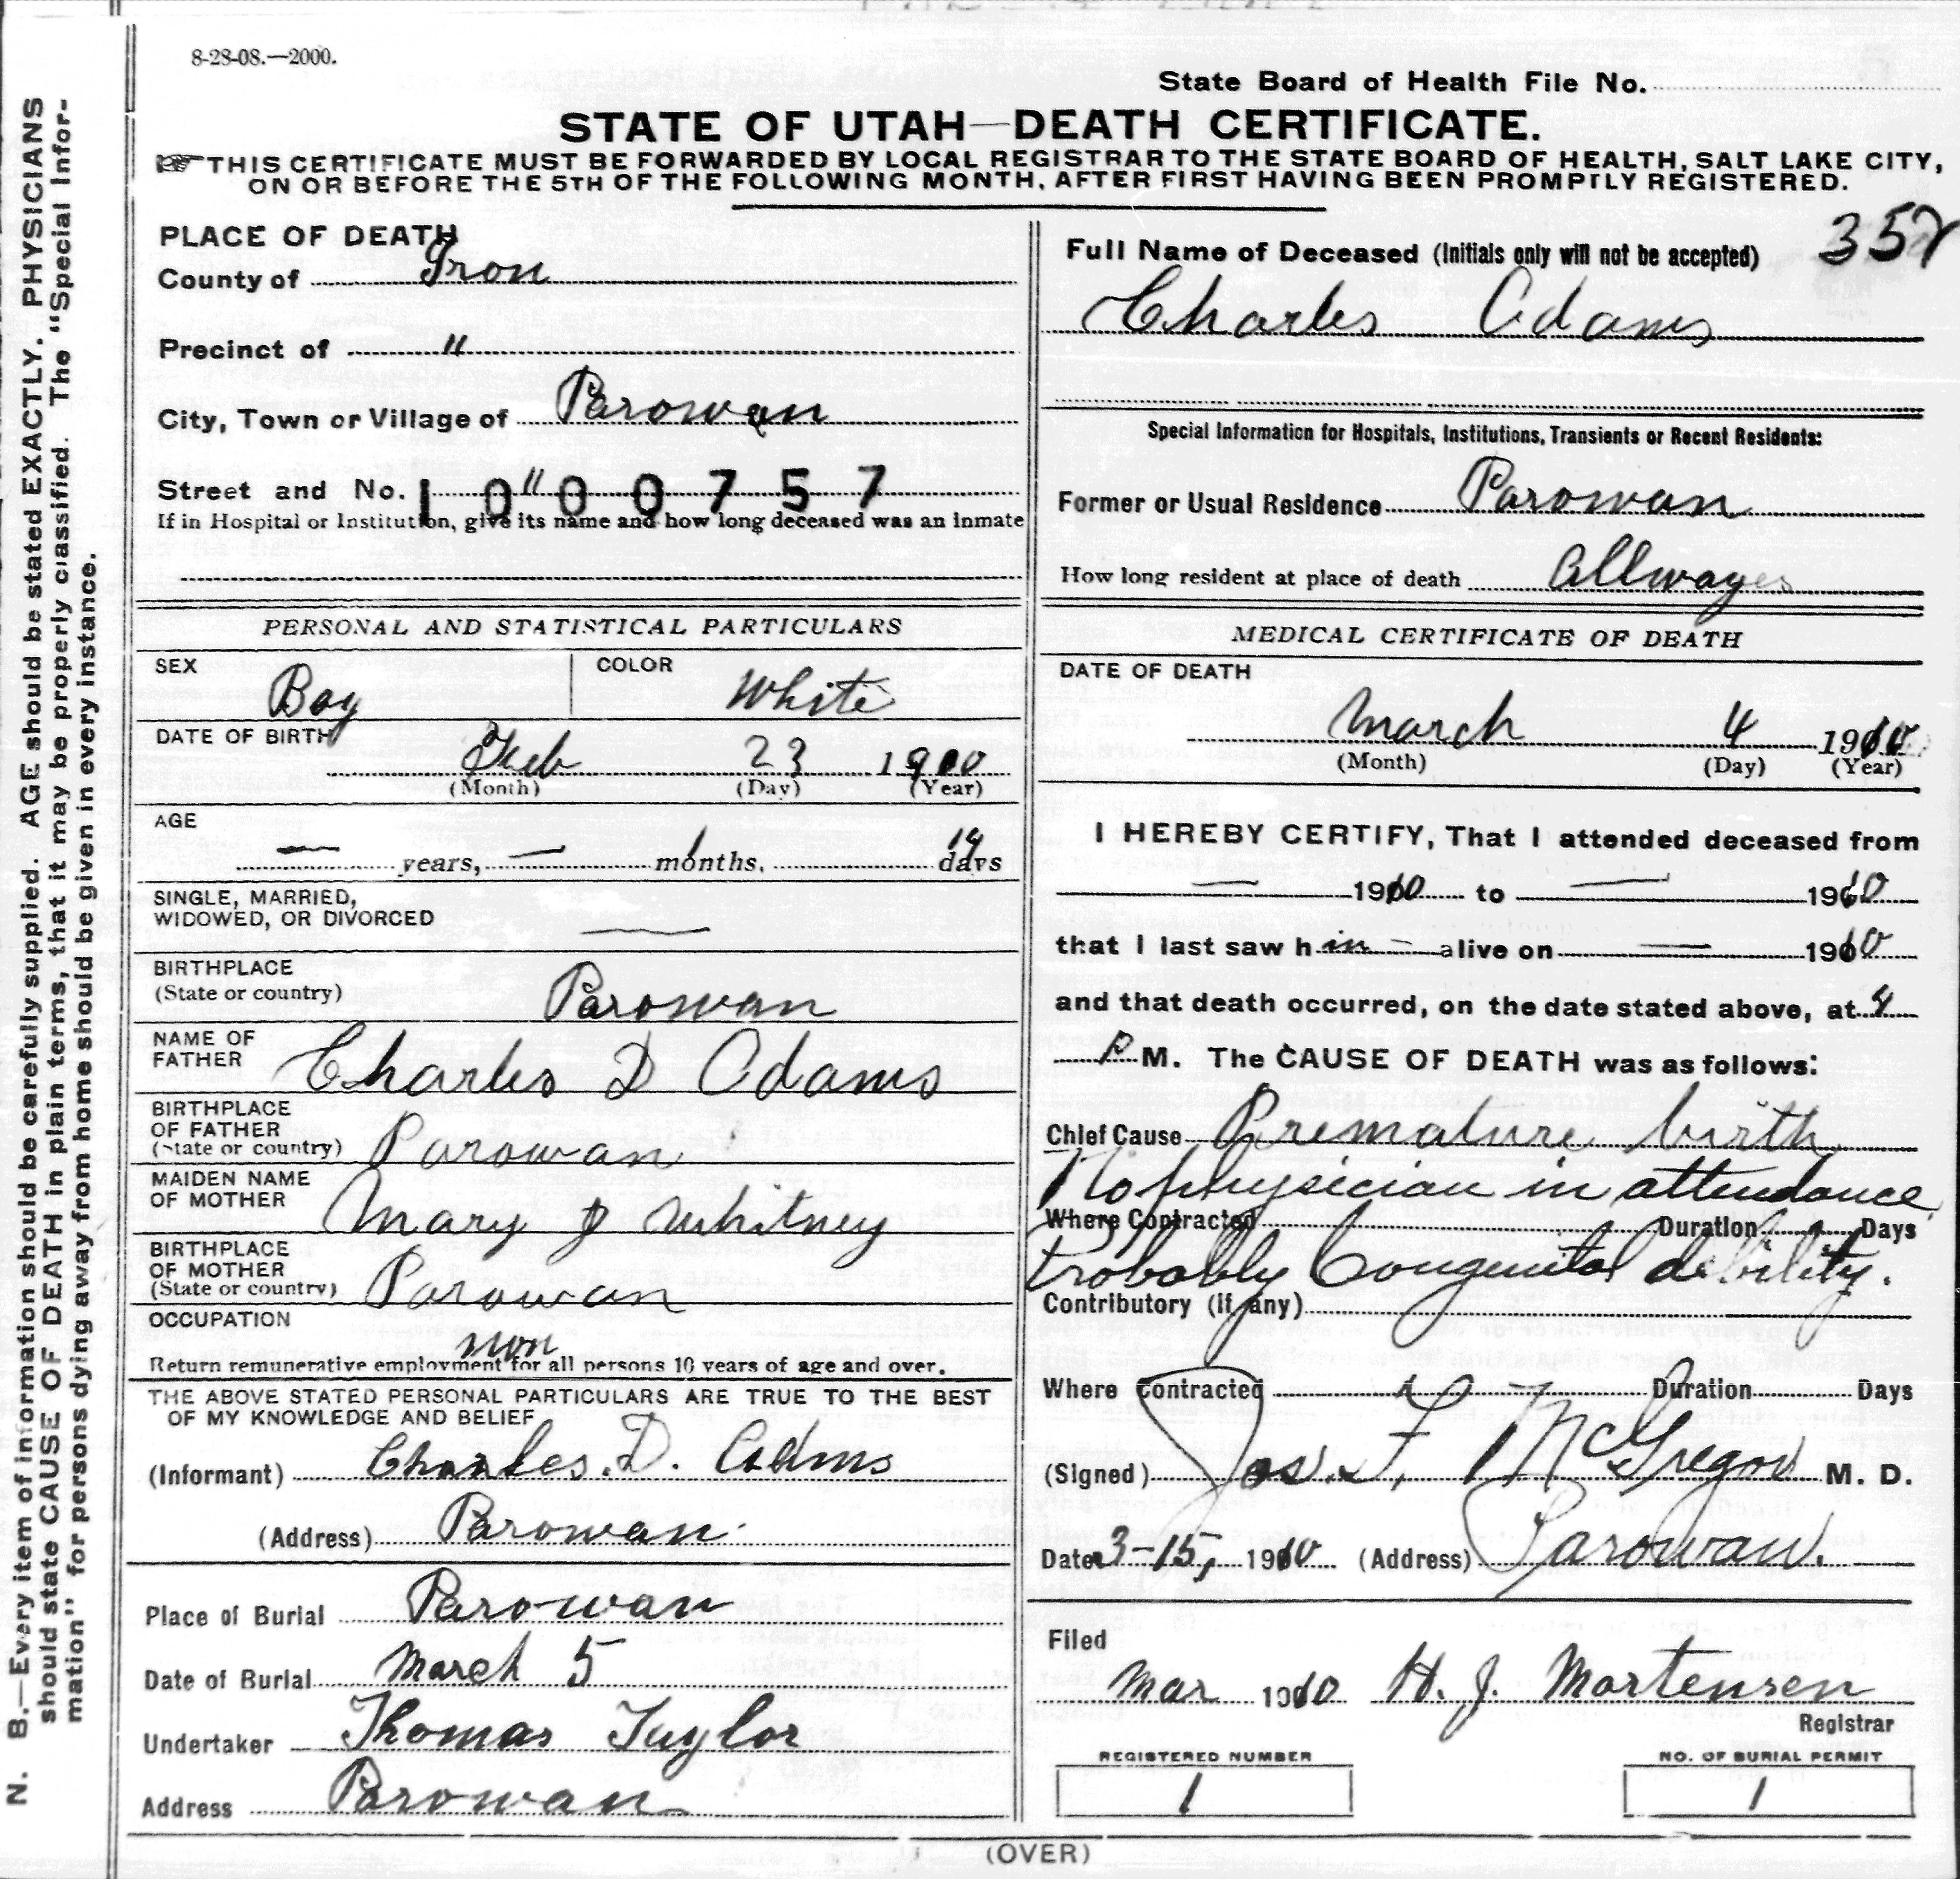 8-28-08.—2000.
State Board of Health File No.
STATE OF UTAH—DEATH CERTIFICATE.
THIS CERTIFICATE MUST BE FORWARDED BY LOCAL REGISTRAR TO THE STATE BOARD OF HEALTH, SALT LAKE CITY,
ON OR BEFORE THE 5TH OF THE FOLLOWING MONTH, AFTER FIRST HAVING BEEN PROMPTLY REGISTERED.
PLACE OF DEATH
County of Iron
Precinct of "
City, Town or Village of Parowan
Street and No. "
1 0 0 0 7 5 7
If in Hospital or Institution, give its name and how long deceased was an inmate
PERSONAL AND STATISTICAL PARTICULARS
SEX Boy COLOR White
DATE OF BIRTH
Feb 23 1910
(Month) (Day) (Year)
AGE
— years, — months, days
SINGLE, MARRIED,
WIDOWED, OR DIVORCED —
BIRTHPLACE
(State or country) Parowan
NAME OF
FATHER Charles D Adams
BIRTHPLACE
OF FATHER
(State or country) Parowan
MAIDEN NAME
OF MOTHER Mary J Whitney
BIRTHPLACE
OF MOTHER
(State or country) Parowan
OCCUPATION
non
Return remunerative employment for all persons 10 years of age and over.
THE ABOVE STATED PERSONAL PARTICULARS ARE TRUE TO THE BEST
OF MY KNOWLEDGE AND BELIEF
(Informant) Charles. D. Adms
(Address) Parowan
Place of Burial Parowan
Date of Burial March 5
Undertaker Thomas Taylor
Address Parowan
Full Name of Deceased (Initials only will not be accepted) 352
Charles Adams
Special Information for Hospitals, Institutions, Transients or Recent Residents:
Former or Usual Residence Parowan
How long resident at place of death Allwayes
MEDICAL CERTIFICATE OF DEATH
DATE OF DEATH
March 4 1910
(Month) (Day) (Year)
I HEREBY CERTIFY, That I attended deceased from
— 1910 to — 1910
that I last saw h im — alive on — 1910
and that death occurred, on the date stated above, at 4
P M. The CAUSE OF DEATH was as follows:
Chief Cause Premature birth
No physician in attendance
Where Contracted Duration Days
Probably Congenital debility.
Contributory (if any)
Where Contracted Duration Days
(Signed) Jos. F. McGregor M. D.
Date 3-15, 1910 (Address) Parowan.
Filed
Mar 1910 H. J. Mortensen
Registrar
REGISTERED NUMBER NO. OF BURIAL PERMIT
1 1
(OVER)
N. B.—Every item of information should be carefully supplied. AGE should be stated EXACTLY. PHYSICIANS
should state CAUSE OF DEATH in plain terms, that it may be properly classified. The "Special Infor-
mation" for persons dying away from home should be given in every instance.